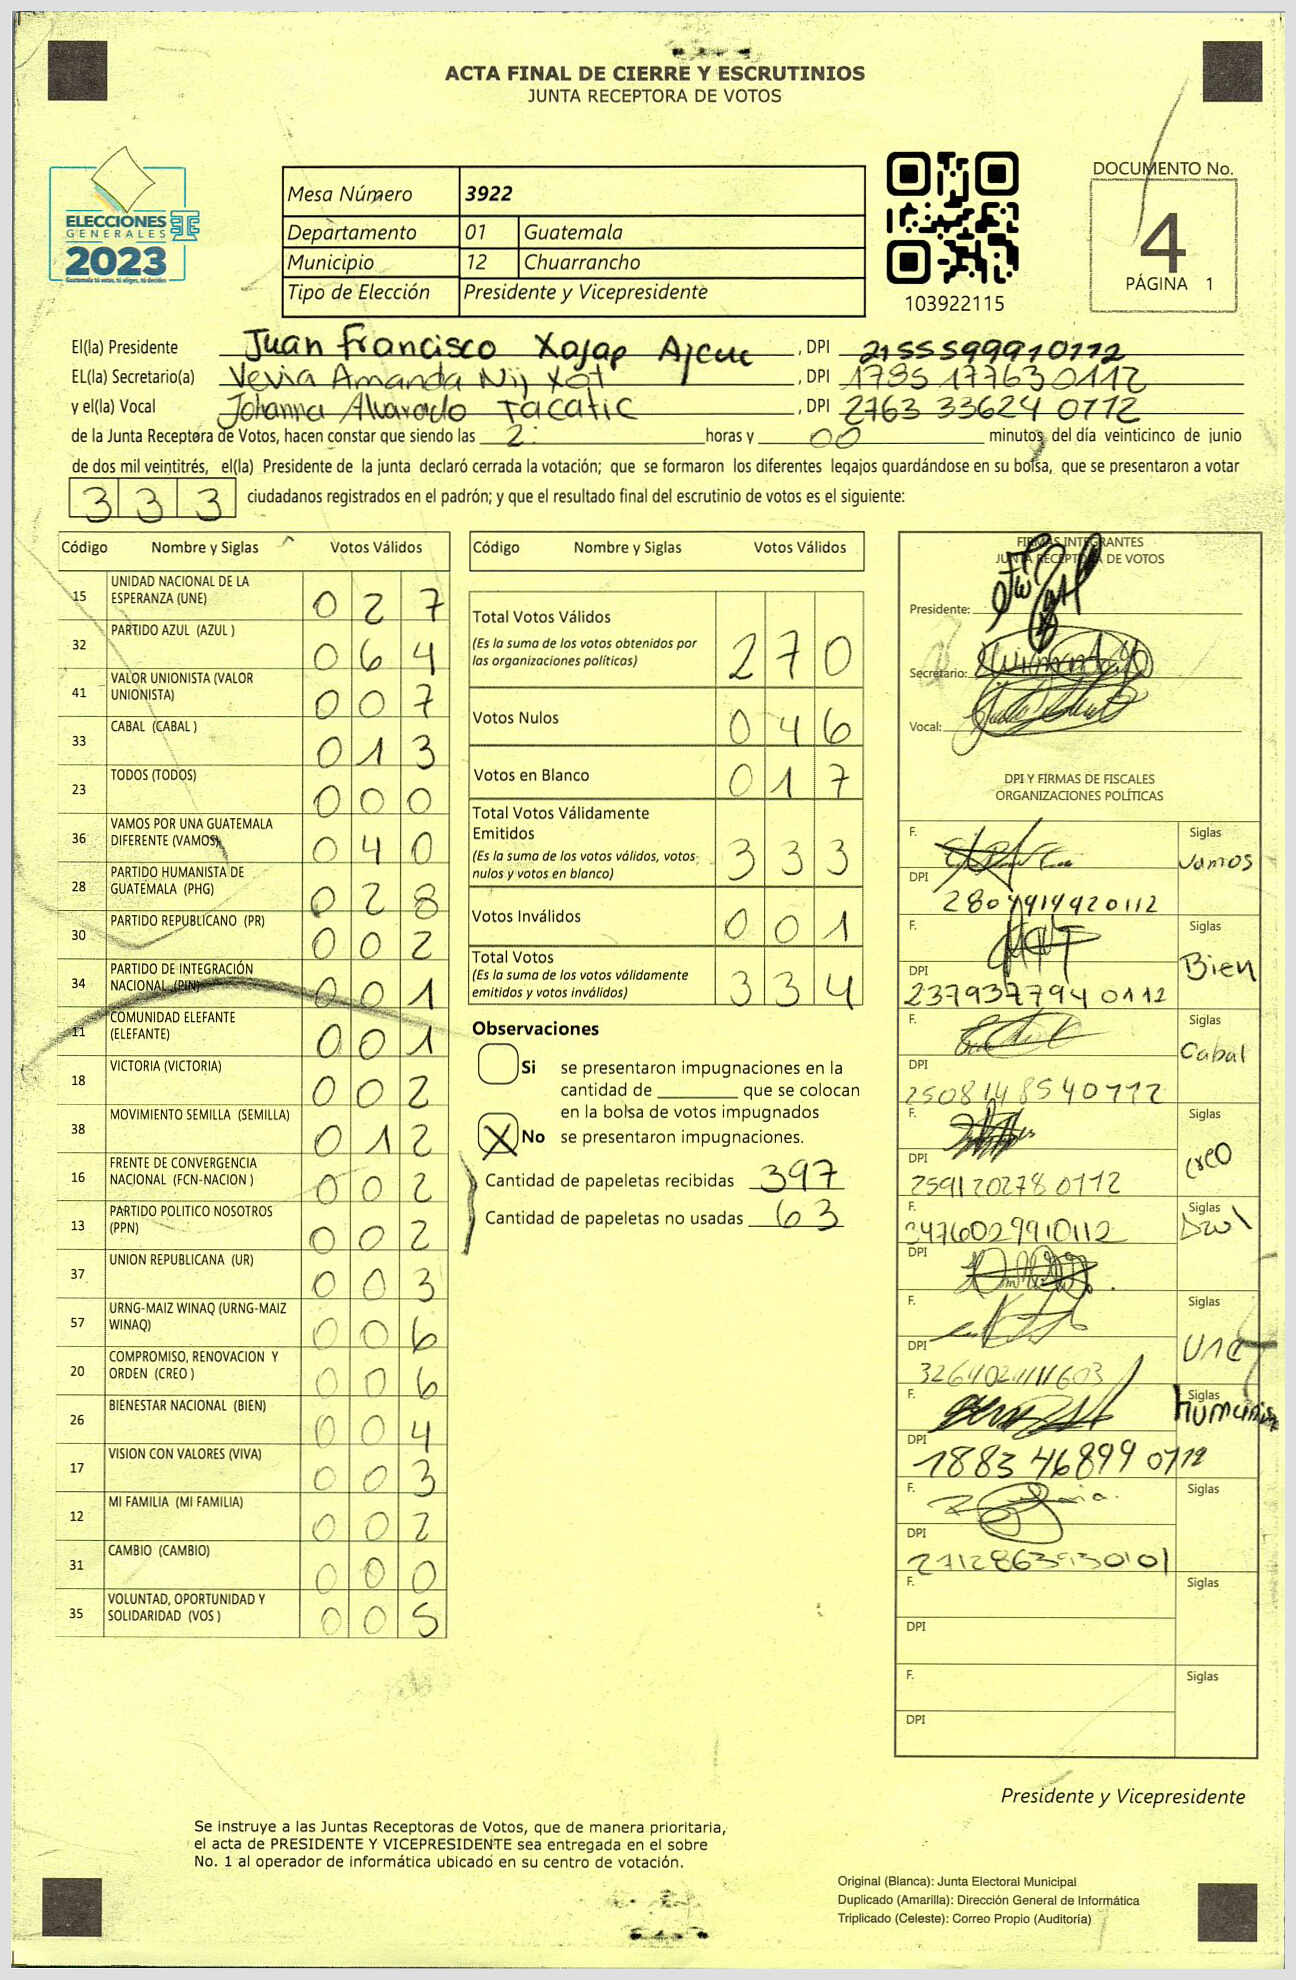 ACTA FINAL DE CIERRE Y ESCRUTINIOS
JUNTA RECEPTORA DE VOTOS
ELECCIONES
GENERALES
2023
Guatemala tú votas, tú eliges, tú decides
Mesa Número 3922
Departamento 01 Guatemala
Municipio 12 Chuarrancho
Tipo de Elección Presidente y Vicepresidente
103922115
DOCUMENTO No.
4
PÁGINA 1
El(la) Presidente Juan Francisco Xojap Ajcuc, DPI 2155599910112
EL(la) Secretario(a) Amanda Nij Xot, DPI 1795 17763 0112
y el(la) Vocal Johanna Alvarado Tacatic, DPI 2763 33624 0112
de la Junta Receptora de Votos, hacen constar que siendo las 2: horas y 00 minutos del día veinticinco de junio
de dos mil veintitrés, el(la) Presidente de la junta declaró cerrada la votación; que se formaron los diferentes legajos guardándose en su bolsa, que se presentaron a votar
333 ciudadanos registrados en el padrón; y que el resultado final del escrutinio de votos es el siguiente:
Código Nombre y Siglas Votos Válidos
15 UNIDAD NACIONAL DE LA ESPERANZA (UNE) 0 2 7
32 PARTIDO AZUL (AZUL ) 0 6 4
41 VALOR UNIONISTA (VALOR UNIONISTA) 0 0 7
33 CABAL (CABAL ) 0 1 3
23 TODOS (TODOS) 0 0 0
36 VAMOS POR UNA GUATEMALA DIFERENTE (VAMOS) 0 4 0
28 PARTIDO HUMANISTA DE GUATEMALA (PHG) 0 2 8
30 PARTIDO REPUBLICANO (PR) 0 0 2
34 PARTIDO DE INTEGRACIÓN NACIONAL (PIN) 0 0 1
11 COMUNIDAD ELEFANTE (ELEFANTE) 0 0 1
18 VICTORIA (VICTORIA) 0 0 2
38 MOVIMIENTO SEMILLA (SEMILLA) 0 1 2
16 FRENTE DE CONVERGENCIA NACIONAL (FCN-NACION ) 0 0 2
13 PARTIDO POLITICO NOSOTROS (PPN) 0 0 2
37 UNION REPUBLICANA (UR) 0 0 3
57 URNG-MAIZ WINAQ (URNG-MAIZ WINAQ) 0 0 6
20 COMPROMISO, RENOVACION Y ORDEN (CREO ) 0 0 6
26 BIENESTAR NACIONAL (BIEN) 0 0 4
17 VISION CON VALORES (VIVA) 0 0 3
12 MI FAMILIA (MI FAMILIA) 0 0 2
31 CAMBIO (CAMBIO) 0 0 0
35 VOLUNTAD, OPORTUNIDAD Y SOLIDARIDAD (VOS ) 0 0 5
Código Nombre y Siglas Votos Válidos
Total Votos Válidos 2 7 0
(Es la suma de los votos obtenidos por
las organizaciones políticas)
Votos Nulos 0 4 6
Votos en Blanco 0 1 7
Total Votos Válidamente
Emitidos 3 3 3
(Es la suma de los votos válidos, votos
nulos y votos en blanco)
Votos Inválidos 0 0 1
Total Votos 3 3 4
(Es la suma de los votos válidamente
emitidos y votos inválidos)
Observaciones
Si se presentaron impugnaciones en la
cantidad de ________ que se colocan
en la bolsa de votos impugnados
X No se presentaron impugnaciones.
Cantidad de papeletas recibidas 397
Cantidad de papeletas no usadas 63
FIRMAS INTEGRANTES
JUNTA RECEPTORA DE VOTOS
Presidente:
Secretario:
Vocal:
DPI Y FIRMAS DE FISCALES
ORGANIZACIONES POLÍTICAS
F. Siglas
Vamos
DPI
2804914920112
F. Siglas
Bien
DPI
2379377940112
F. Siglas
Cabal
DPI
2508148540112
F. Siglas
Creo
DPI
2591202780112
F. Siglas
DPI
F. Siglas
UNE
DPI
F. Siglas
DPI
1883 46899 0112
F. Siglas
DPI
2712863930101
F. Siglas
DPI
F. Siglas
DPI
Presidente y Vicepresidente
Se instruye a las Juntas Receptoras de Votos, que de manera prioritaria,
el acta de PRESIDENTE Y VICEPRESIDENTE sea entregada en el sobre
No. 1 al operador de informática ubicado en su centro de votación.
Original (Blanca): Junta Electoral Municipal
Duplicado (Amarilla): Dirección General de Informática
Triplicado (Celeste): Correo Propio (Auditoría)